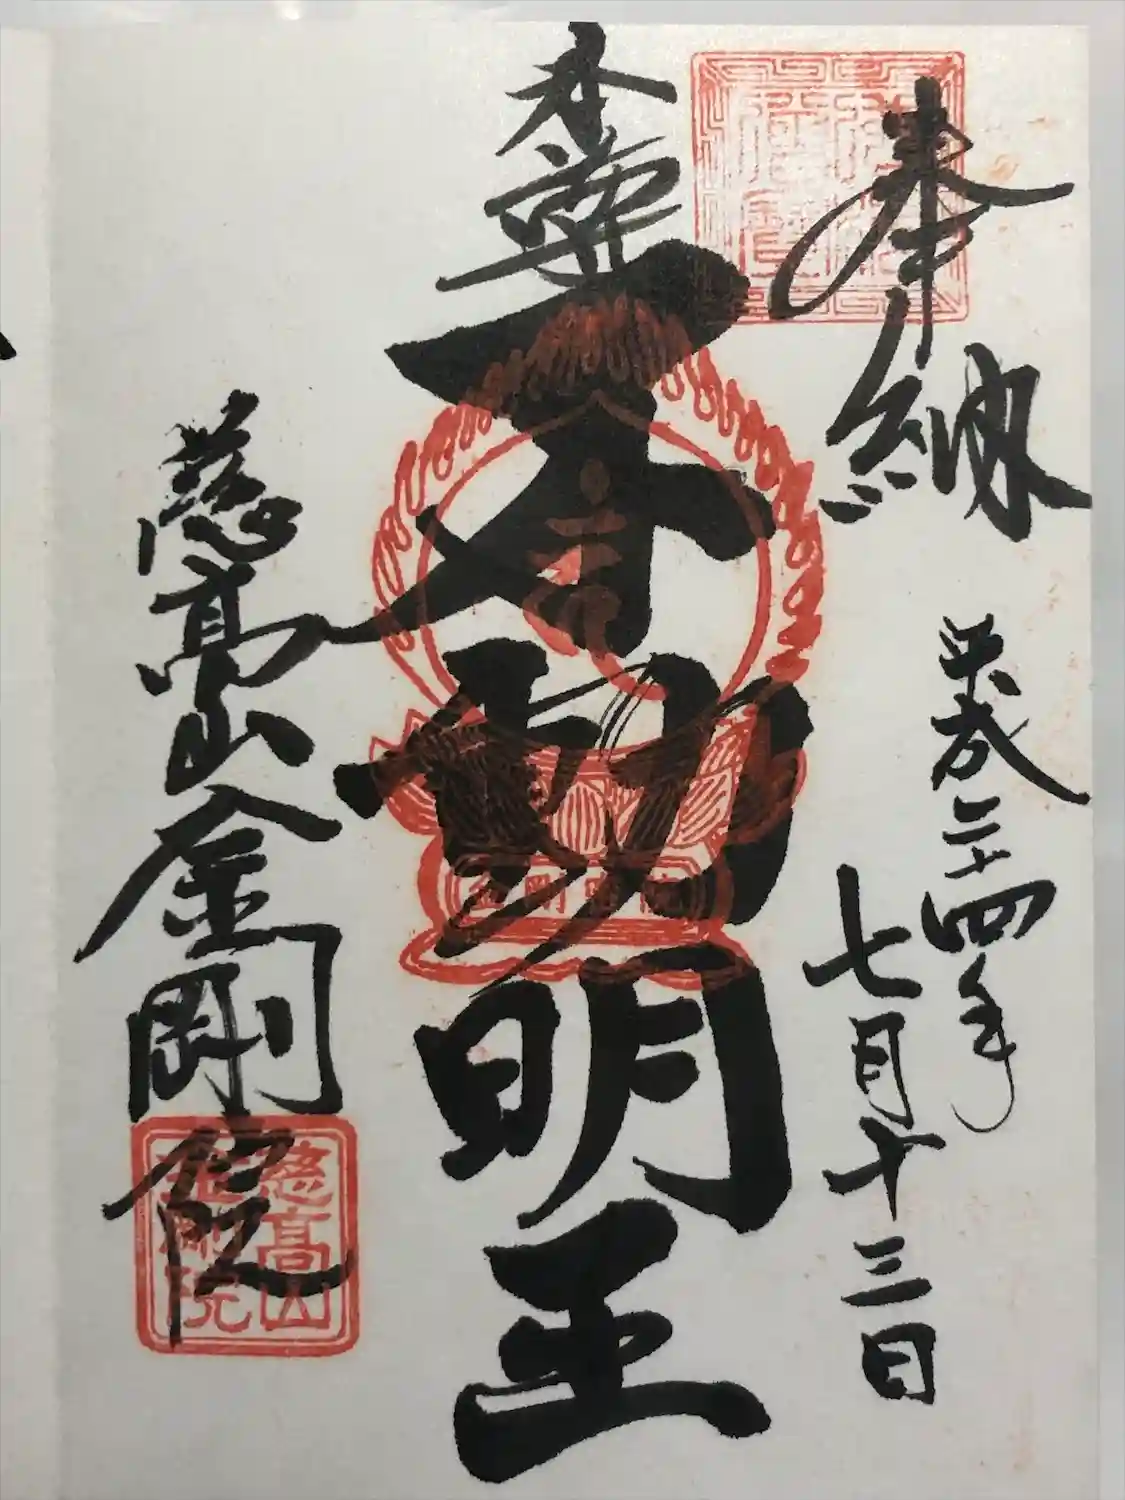 奉納
平成二十四年
七月十三日
本尊
不動明王
金剛密院
慈高山金剛院
慈高山
金剛院